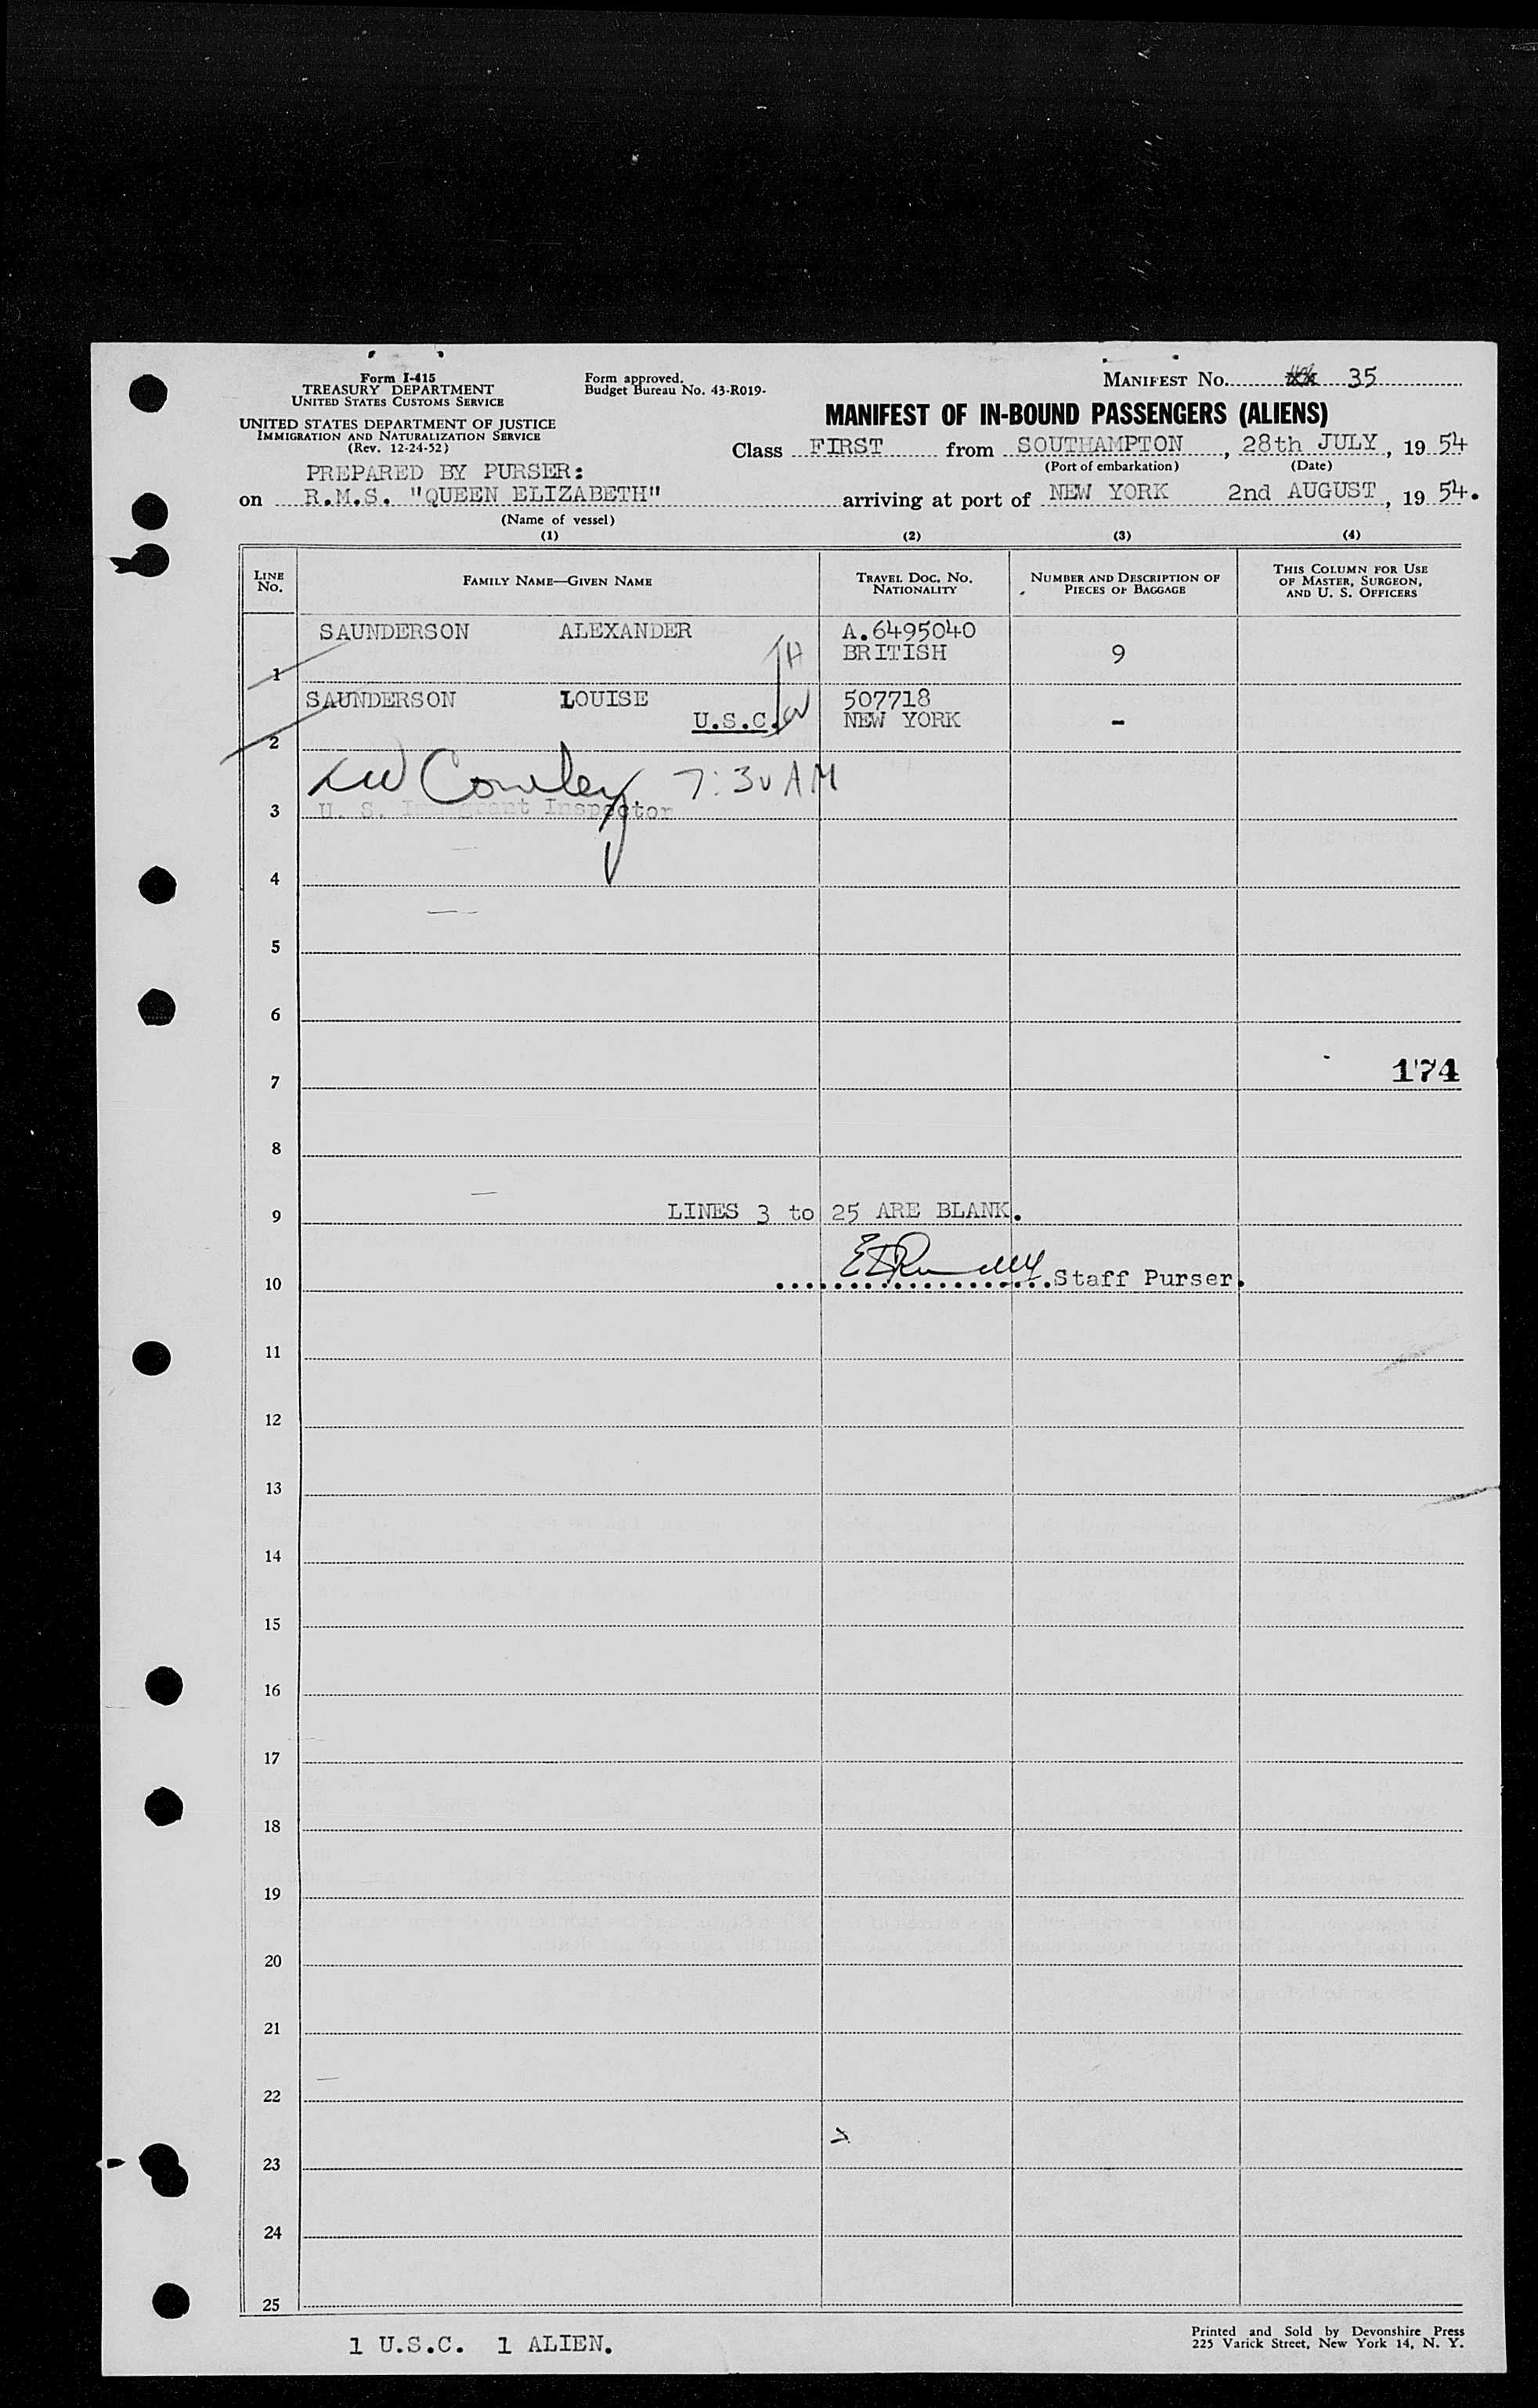 Form I-415
TREASURY DEPARTMENT
UNITED STATES CUSTOMS SERVICE
UNITED STATES DEPARTMENT OF JUSTICE
IMMIGRATION AND NATURALIZATION SERVICE
(Rev. 12-24-52)
Form approved.
Budget Bureau No. 43-R019-
MANIFEST NO. 35
MANIFEST OF IN-BOUND PASSENGERS (ALIENS)
Class FIRST from SOUTHAMPTON, 28th JULY, 19 54
(Port of embarkation) (Date)
PREPARED BY PURSER:
on R.M.S. "QUEEN ELIZABETH" arriving at port of NEW YORK 2nd AUGUST, 19 54.
(Name of vessel)
(1) (2) (3) (4)
LINE NO. FAMILY NAME—GIVEN NAME TRAVEL DOC. NO. NATIONALITY NUMBER AND DESCRIPTION OF PIECES OF BAGGAGE THIS COLUMN FOR USE OF MASTER, SURGEON, AND U. S. OFFICERS
SAUNDERSON ALEXANDER A.6495040
H BRITISH 9
1
SAUNDERSON LOUISE 507718
U.S.C. W NEW YORK -
2
Cowley 7:30 AM
3 U. S. Immigrant Inspector
4
5
6
7 174
8
9 LINES 3 to 25 ARE BLANK.
10 Staff Purser.
11
12
13
14
15
16
17
18
19
20
21
22
23
24
25
1 U.S.C. 1 ALIEN.
Printed and Sold by Devonshire Press
225 Varick Street, New York 14, N. Y.